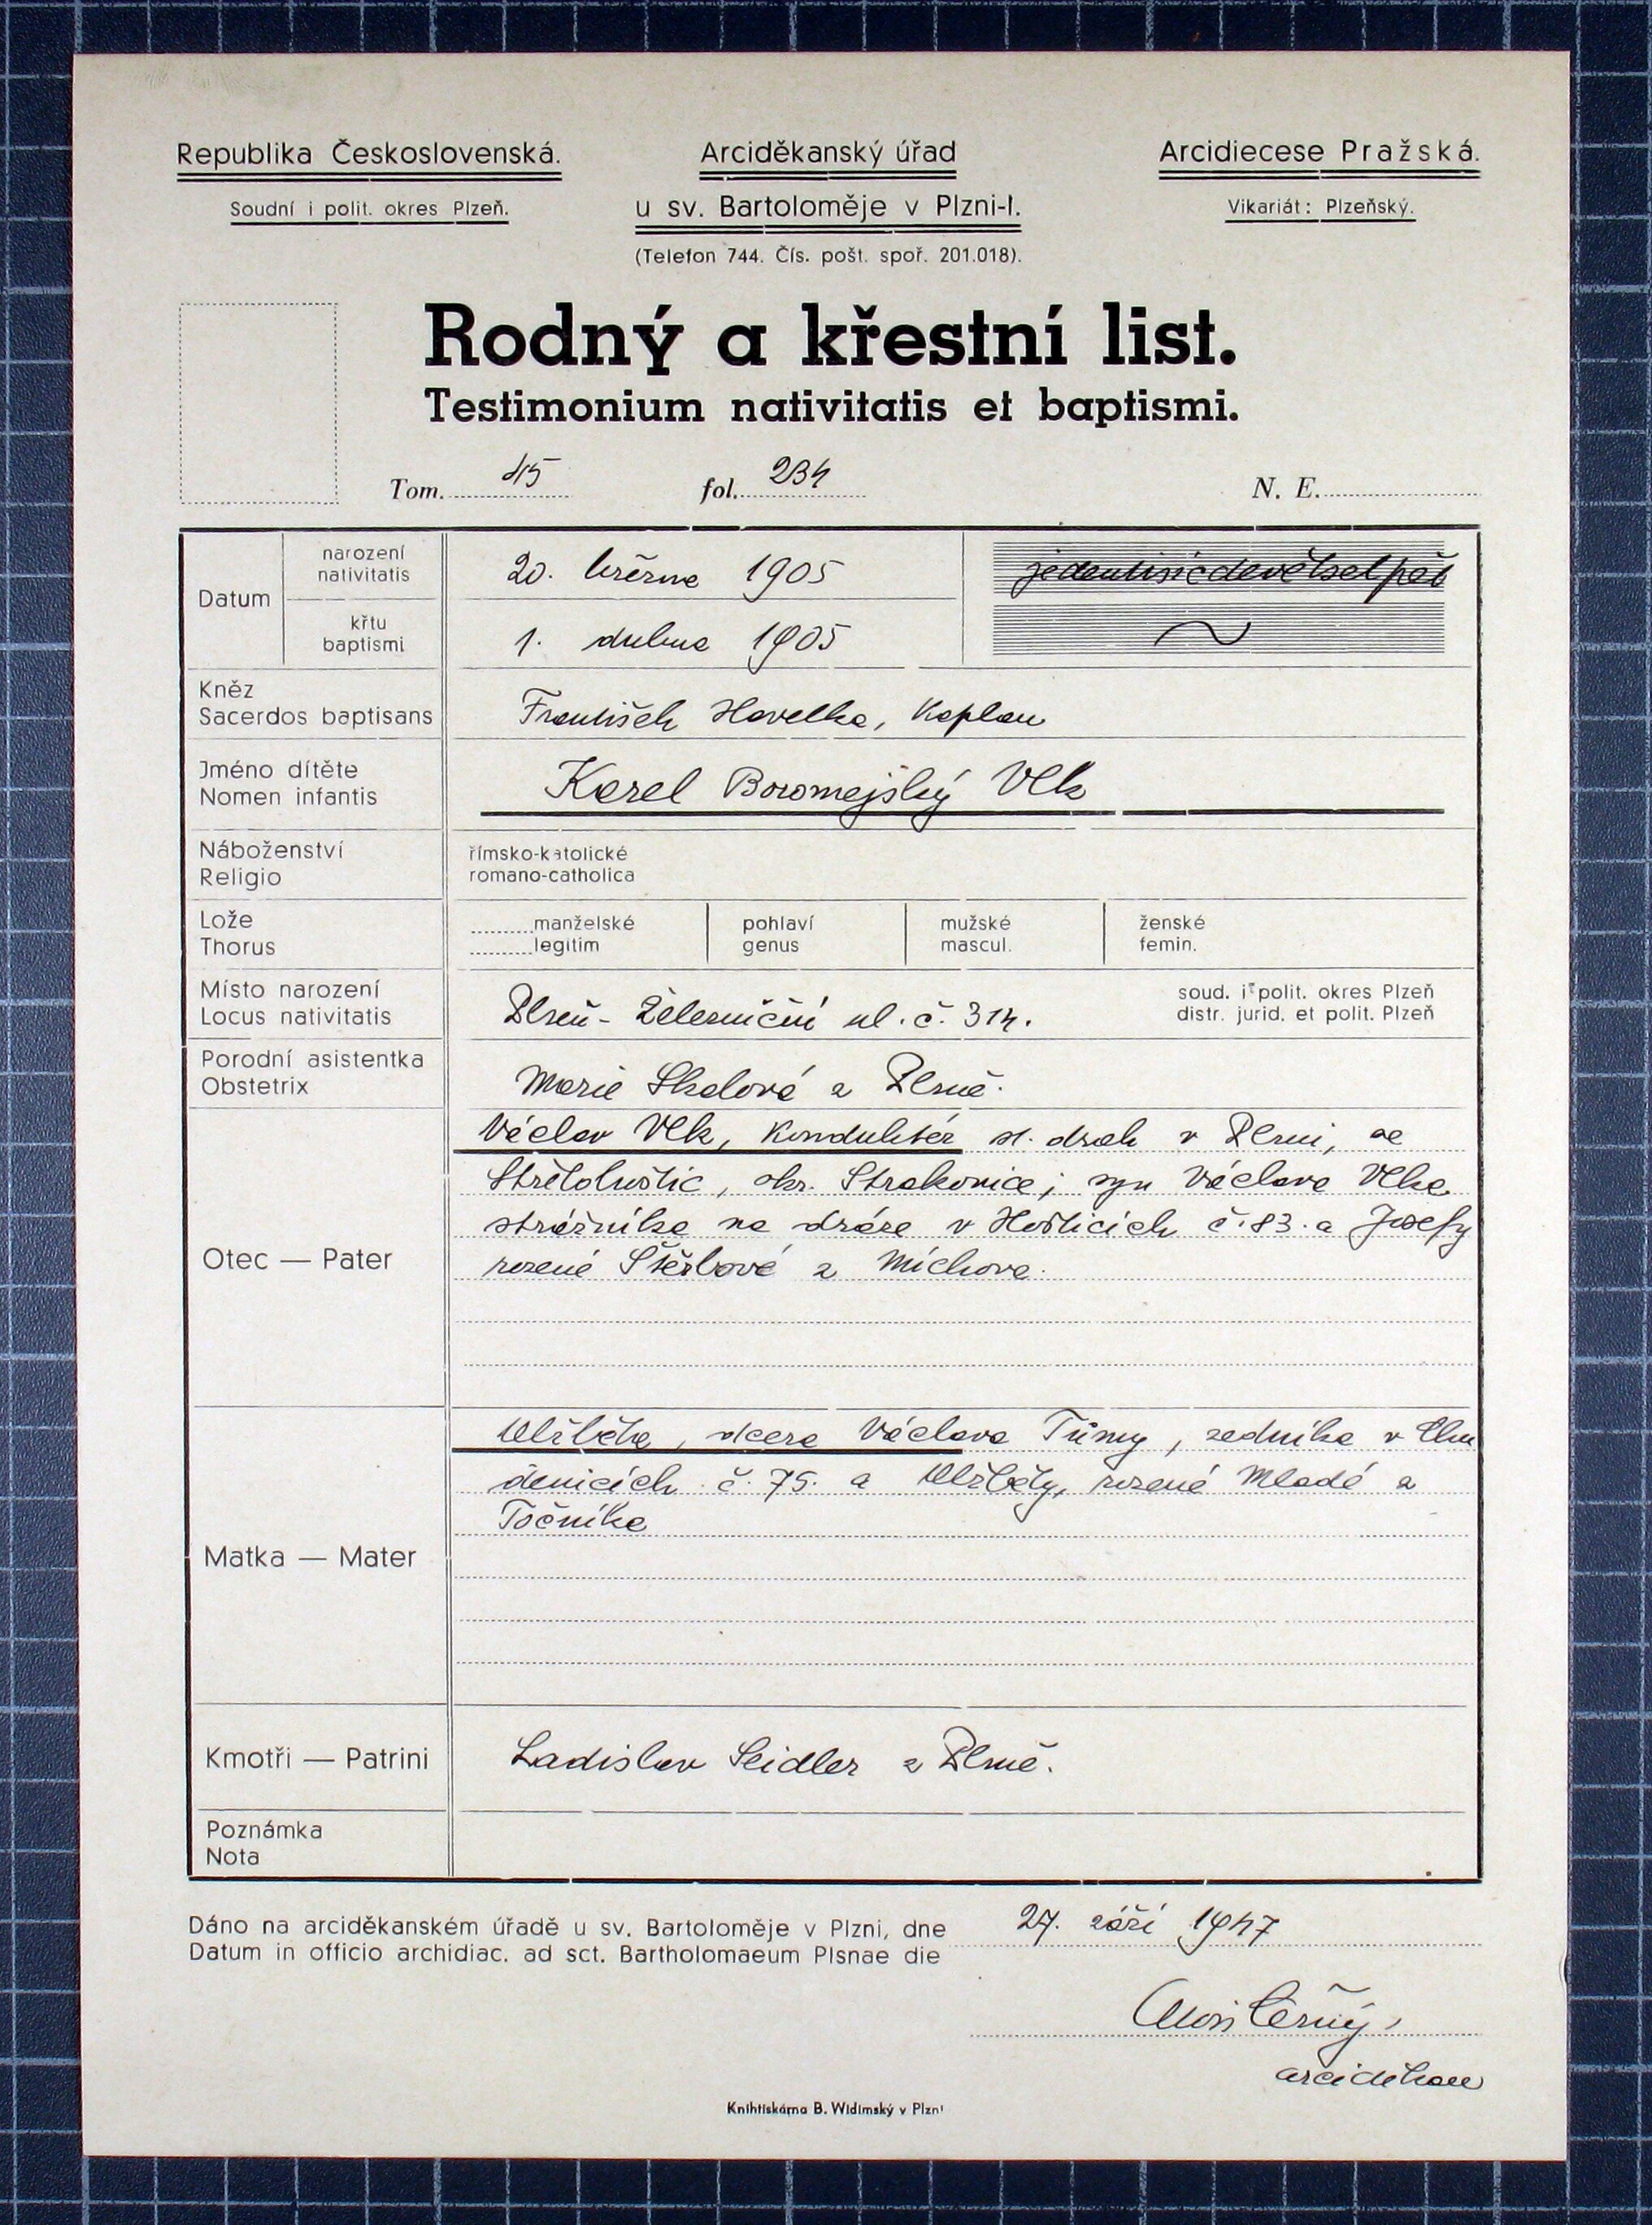 Republika Československá.
Soudní i polit. okres Plzeň.
Arciděkanský úřad
u sv. Bartoloměje v Plzni-I.
(Telefon 744. Čís. pošt. spoř. 201.018).
Arcidiecese Pražská.
Vikariát: Plzeňský.
Rodný a křestní list.
Testimonium nativitatis et baptismi.
Tom. 45 fol. 234 N. E.
Datum
narození
nativitatis
20. března 1905
jedentisícdevětsetpět
křtu
baptismi
1. dubna 1905
Kněz
Sacerdos baptisans
František Havelka, kaplan
Jméno dítěte
Nomen infantis
Karel Boromejský Vlk
Náboženství
Religio
římsko-katolické
romano-catholica
Lože
Thorus
manželské
legitim
pohlaví
genus
mužské
mascul.
ženské
femin.
Místo narození
Locus nativitatis
Plzeň - Železniční ul. č. 314.
soud. i polit. okres Plzeň
distr. jurid. et polit. Plzeň
Porodní asistentka
Obstetrix
Marie Skalová z Plzně.
Otec — Pater
Václav Vlk, konduktér st. drah v Plzni, ze
Střeľohoštic, okr. Strakonice; syn Václava Vlka
strážníka na dráze v Hošticích č. 83. a Josefy
rozené Štěrbové z Míchova.
Matka — Mater
Alžběta, dcera Václava Tůmy, zedníka v Chu
denicích č. 75. a Alžběty, rozené Mladé z
Točníka
Kmotři — Patrini
Ladislav Seidler z Plzně.
Poznámka
Nota
Dáno na arciděkanském úřadě u sv. Bartoloměje v Plzni, dne
Datum in officio archidiac. ad sct. Bartholomaeum Plsnae die
27. září 1947
Alois Černý,
arciděkan
Knihtiskárna B. Widimský v Plzni